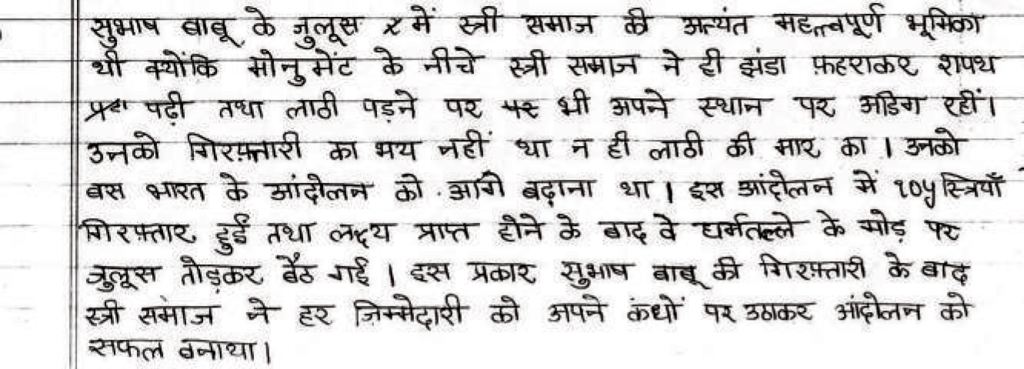 सुभाष बाबू के जुलूस में स्त्री समाज की अत्यंत महत्त्वपूर्ण भूमिका
थी क्योंकि मोनुमेंट के नीचे स्त्री समाज ने ही झंडा फ़हराकर शपथ
पढ़ी तथा लाठी पड़ने पर भी अपने स्थान पर अडिग रहीं।
उनको गिरफ़्तारी का भय नहीं था न ही लाठी की मार का। उनको
बस भारत के आंदोलन को आगे बढ़ाना था। इस आंदोलन में १०५ स्त्रियाँ
गिरफ़्तार हुईं तथा लक्ष्य प्राप्त होने के बाद वे धर्मतल्ले के मोड़ पर
जुलूस तोड़कर बैठ गईं। इस प्रकार सुभाष बाबू की गिरफ़्तारी के बाद
स्त्री समाज ने हर ज़िम्मेदारी को अपने कंधों पर उठाकर आंदोलन को
सफल बनाया।